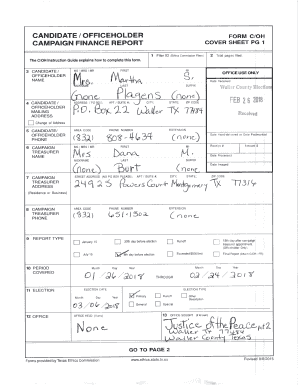 CANDIDATE / OFFICEHOLDER
CAMPAIGN FINANCE REPORT
FORM C/OH
COVER SHEET PG 1
The C/OH Instruction Guide explains how to complete this form.
1 Filer ID (Ethics Commission Filers)
2 Total pages filed:
3 CANDIDATE / OFFICEHOLDER NAME
MS / MRS / MR FIRST MI
Mrs. Martha S.
NICKNAME LAST SUFFIX
(none) Plagens (none)
OFFICE USE ONLY
Date Received
Waller County Elections
FEB 26 2018
Received
4 CANDIDATE / OFFICEHOLDER MAILING ADDRESS
Change of Address
ADDRESS / PO BOX; APT / SUITE #; CITY; STATE; ZIP CODE
P.O. Box 22 Waller TX 77484
5 CANDIDATE / OFFICEHOLDER PHONE
AREA CODE PHONE NUMBER EXTENSION
(832) 808-4639 (none)
Date Hand-delivered or Date Postmarked
6 CAMPAIGN TREASURER NAME
MS / MRS / MR FIRST MI
Mrs Dana M.
NICKNAME LAST SUFFIX
(none) Burt (none)
Receipt # Amount $
Date Processed
Date Imaged
7 CAMPAIGN TREASURER ADDRESS
(Residence or Business)
STREET ADDRESS (NO PO BOX PLEASE); APT / SUITE #; CITY; STATE; ZIP CODE
24925 Powers Court Montgomery TX 77316
8 CAMPAIGN TREASURER PHONE
AREA CODE PHONE NUMBER EXTENSION
(832) 651-1502 (none)
9 REPORT TYPE
January 15
30th day before election
Runoff
15th day after campaign treasurer appointment (Officeholder Only)
July 15
8th day before election
Exceeded $500 limit
Final Report (Attach C/OH - FR)
10 PERIOD COVERED
Month Day Year
01/26/2018 THROUGH 02/24/2018
11 ELECTION
ELECTION DATE
Month Day Year
03/06/2018
ELECTION TYPE
Primary
Runoff
Other Description
General
Special
12 OFFICE
OFFICE HELD (if any)
None
13 OFFICE SOUGHT (if known)
Justice of the Peace pct 2
Waller County Texas
GO TO PAGE 2
Forms provided by Texas Ethics Commission
www.ethics.state.tx.us
Revised 9/8/2015